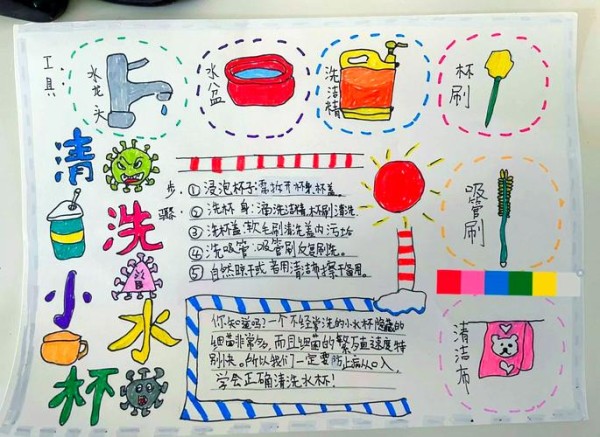 工具:
水龙头
水盆
洗洁精
杯刷
清洗小水杯
步骤:
①浸泡杯子:需拆开杯身、杯盖。
②洗杯身:滴洗洁精、杯刷清洗。
③洗杯盖:软毛刷清洗盖内污垢
④洗吸管:吸管刷反复刷洗。
⑤自然晾干或者用清洁布擦干备用。
吸管刷
清洁布
你知道吗?一个不经常洗的小水杯隐藏的
细菌非常多,而且细菌的繁殖速度特
别快。所以我们一定要防止病从口入,
学会正确清洗水杯!